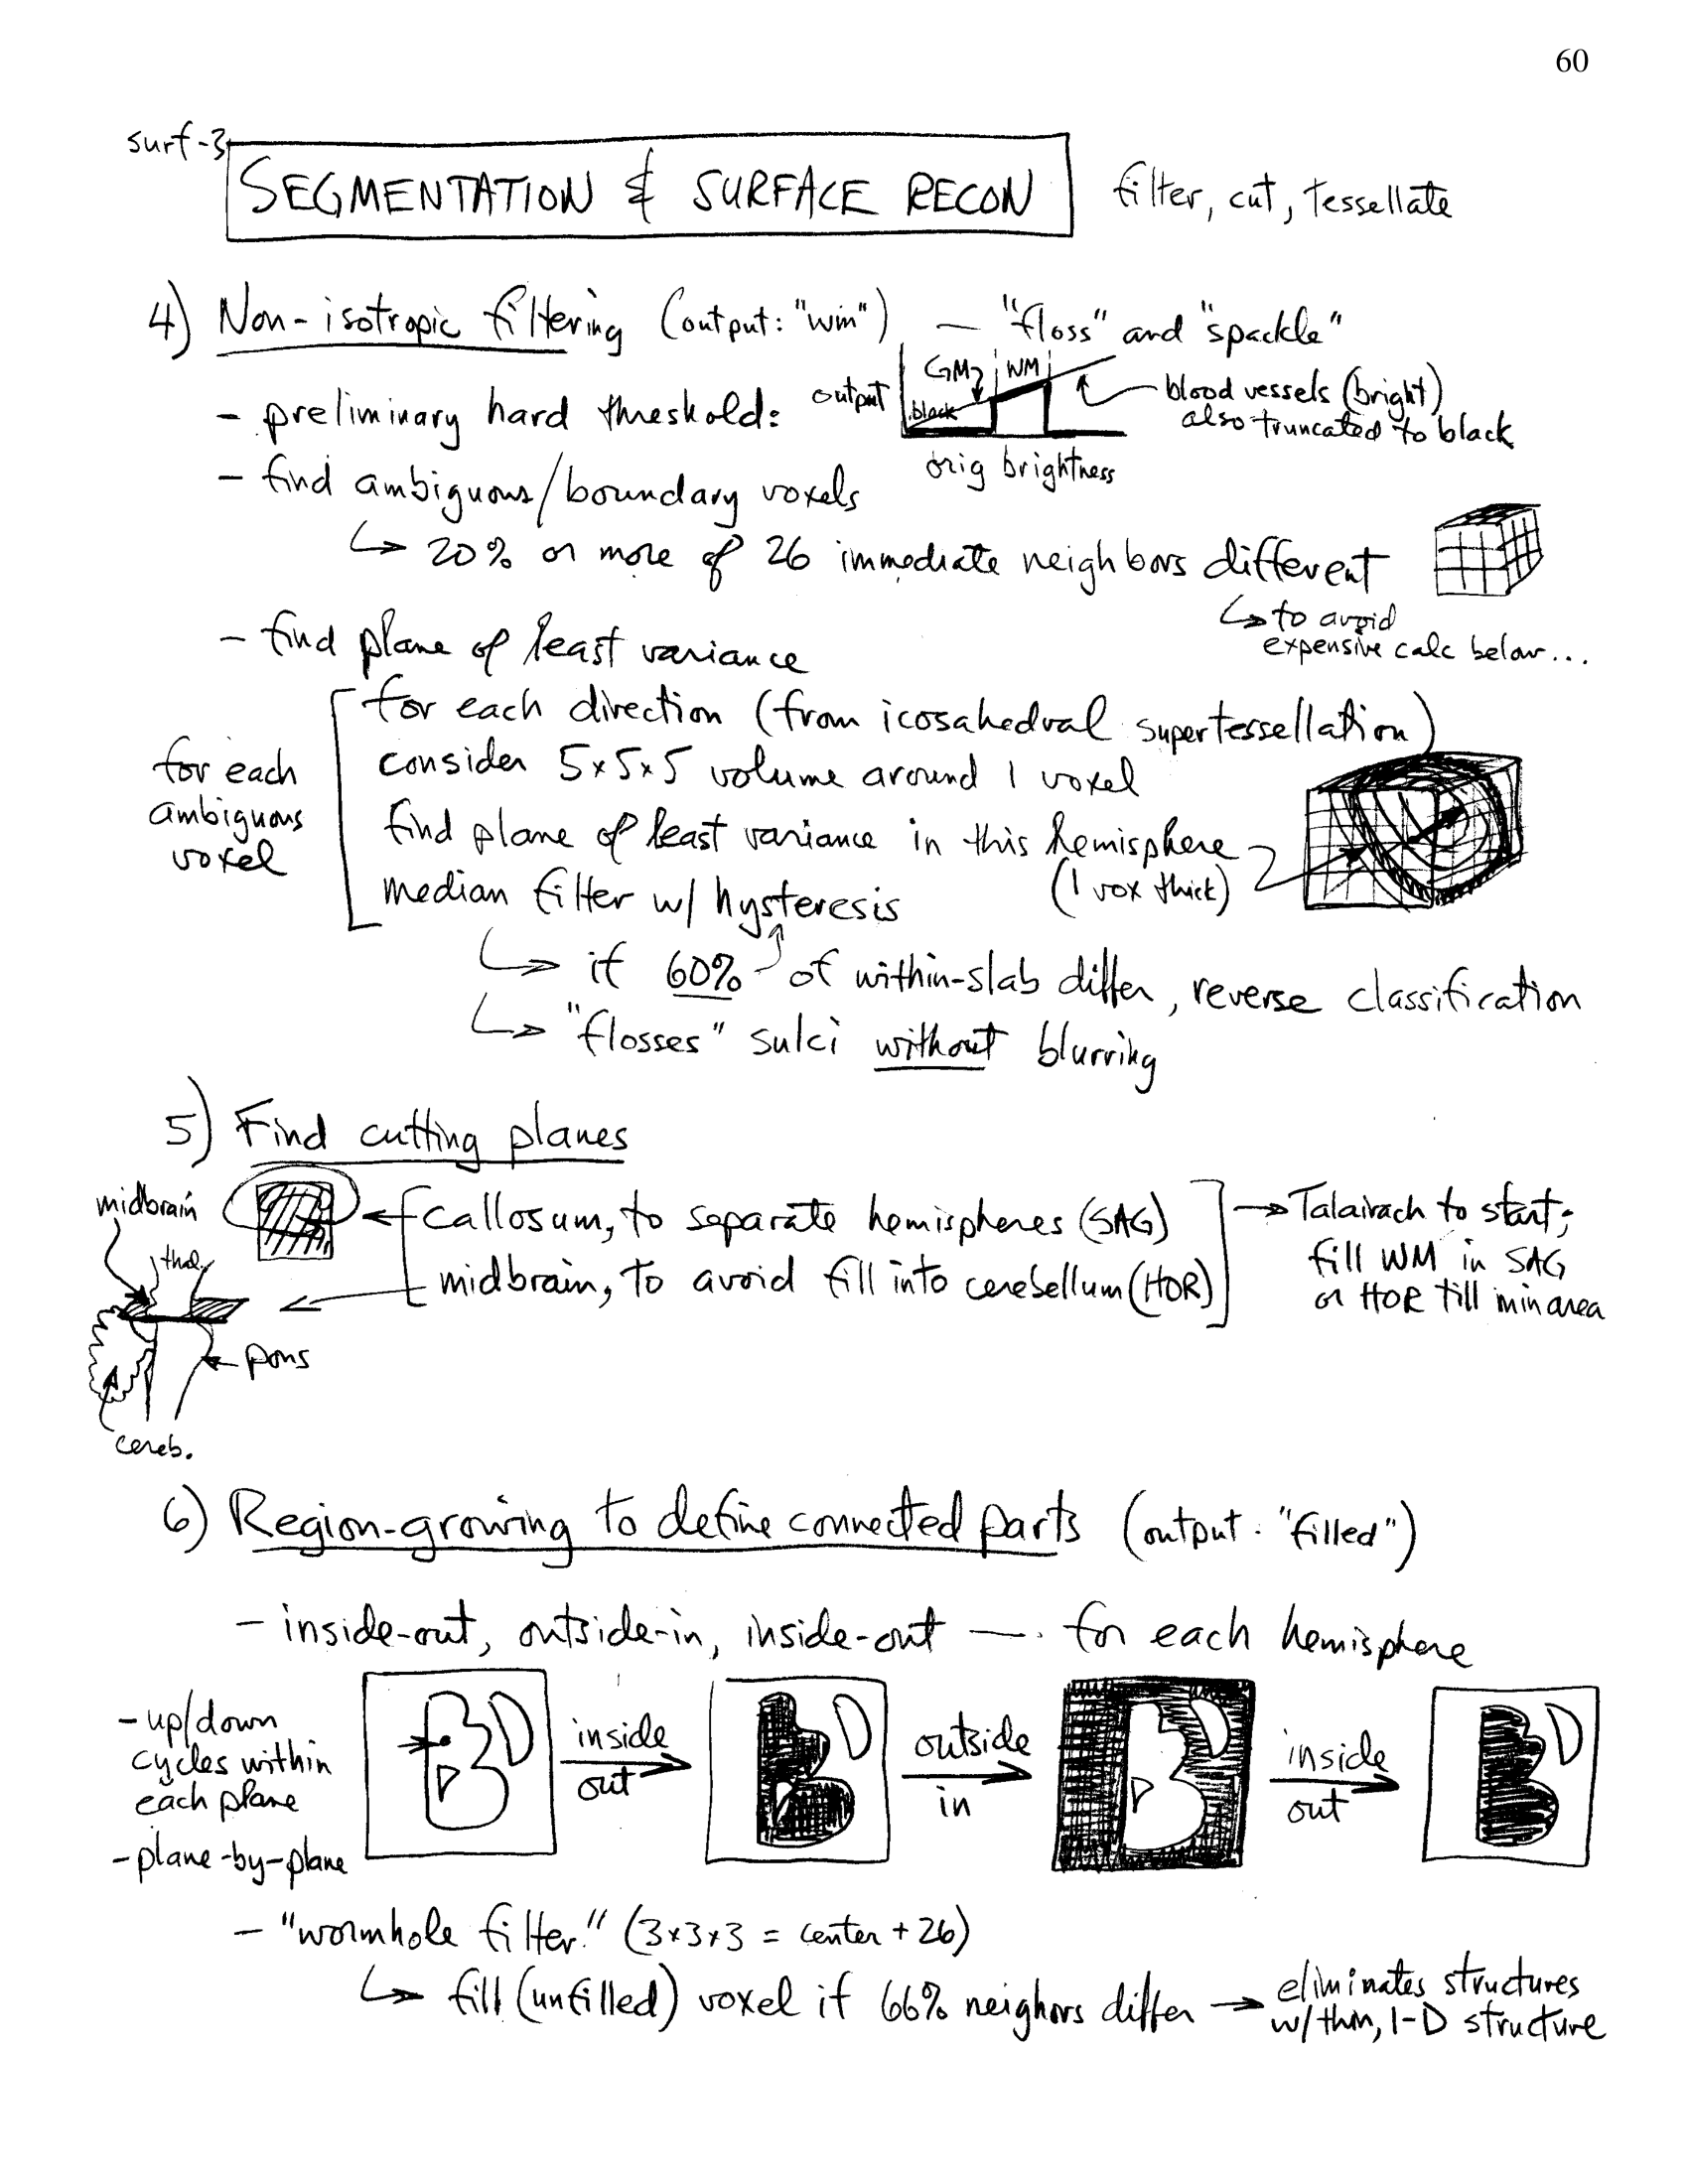 60
surf-3
SEGMENTATION & SURFACE RECON
filter, cut, tessellate
4) Non-isotropic filtering (output: "wm") — "floss" and "spackle"
- preliminary hard threshold:
output
GM
WM
black
orig brightness
blood vessels (bright)
also truncated to black
- find ambiguous/boundary voxels
↳ 20% or more of 26 immediate neighbors different
↳ to avoid
expensive calc below...
- find plane of least variance
for each
ambiguous
voxel
for each direction (from icosahedral supertessellation)
consider 5x5x5 volume around 1 voxel
find plane of least variance in this hemisphere
(1 vox thick)
median filter w/ hysteresis
↳ if 60% of within-slab differ, reverse classification
↳ "flosses" sulci without blurring
5) Find cutting planes
callosum, to separate hemispheres (SAG)
midbrain, to avoid fill into cerebellum (HOR)
→ Talairach to start;
fill WM in SAG
or HOR till min area
midbrain
thal.
pons
cereb.
6) Region-growing to define connected parts (output: "filled")
- inside-out, outside-in, inside-out — for each hemisphere
- up/down
cycles within
each plane
- plane-by-plane
inside
out
outside
in
inside
out
- "wormhole filter" (3x3x3 = center + 26)
↳ fill (unfilled) voxel if 66% neighors differ → eliminates structures
w/ thin, 1-D structure